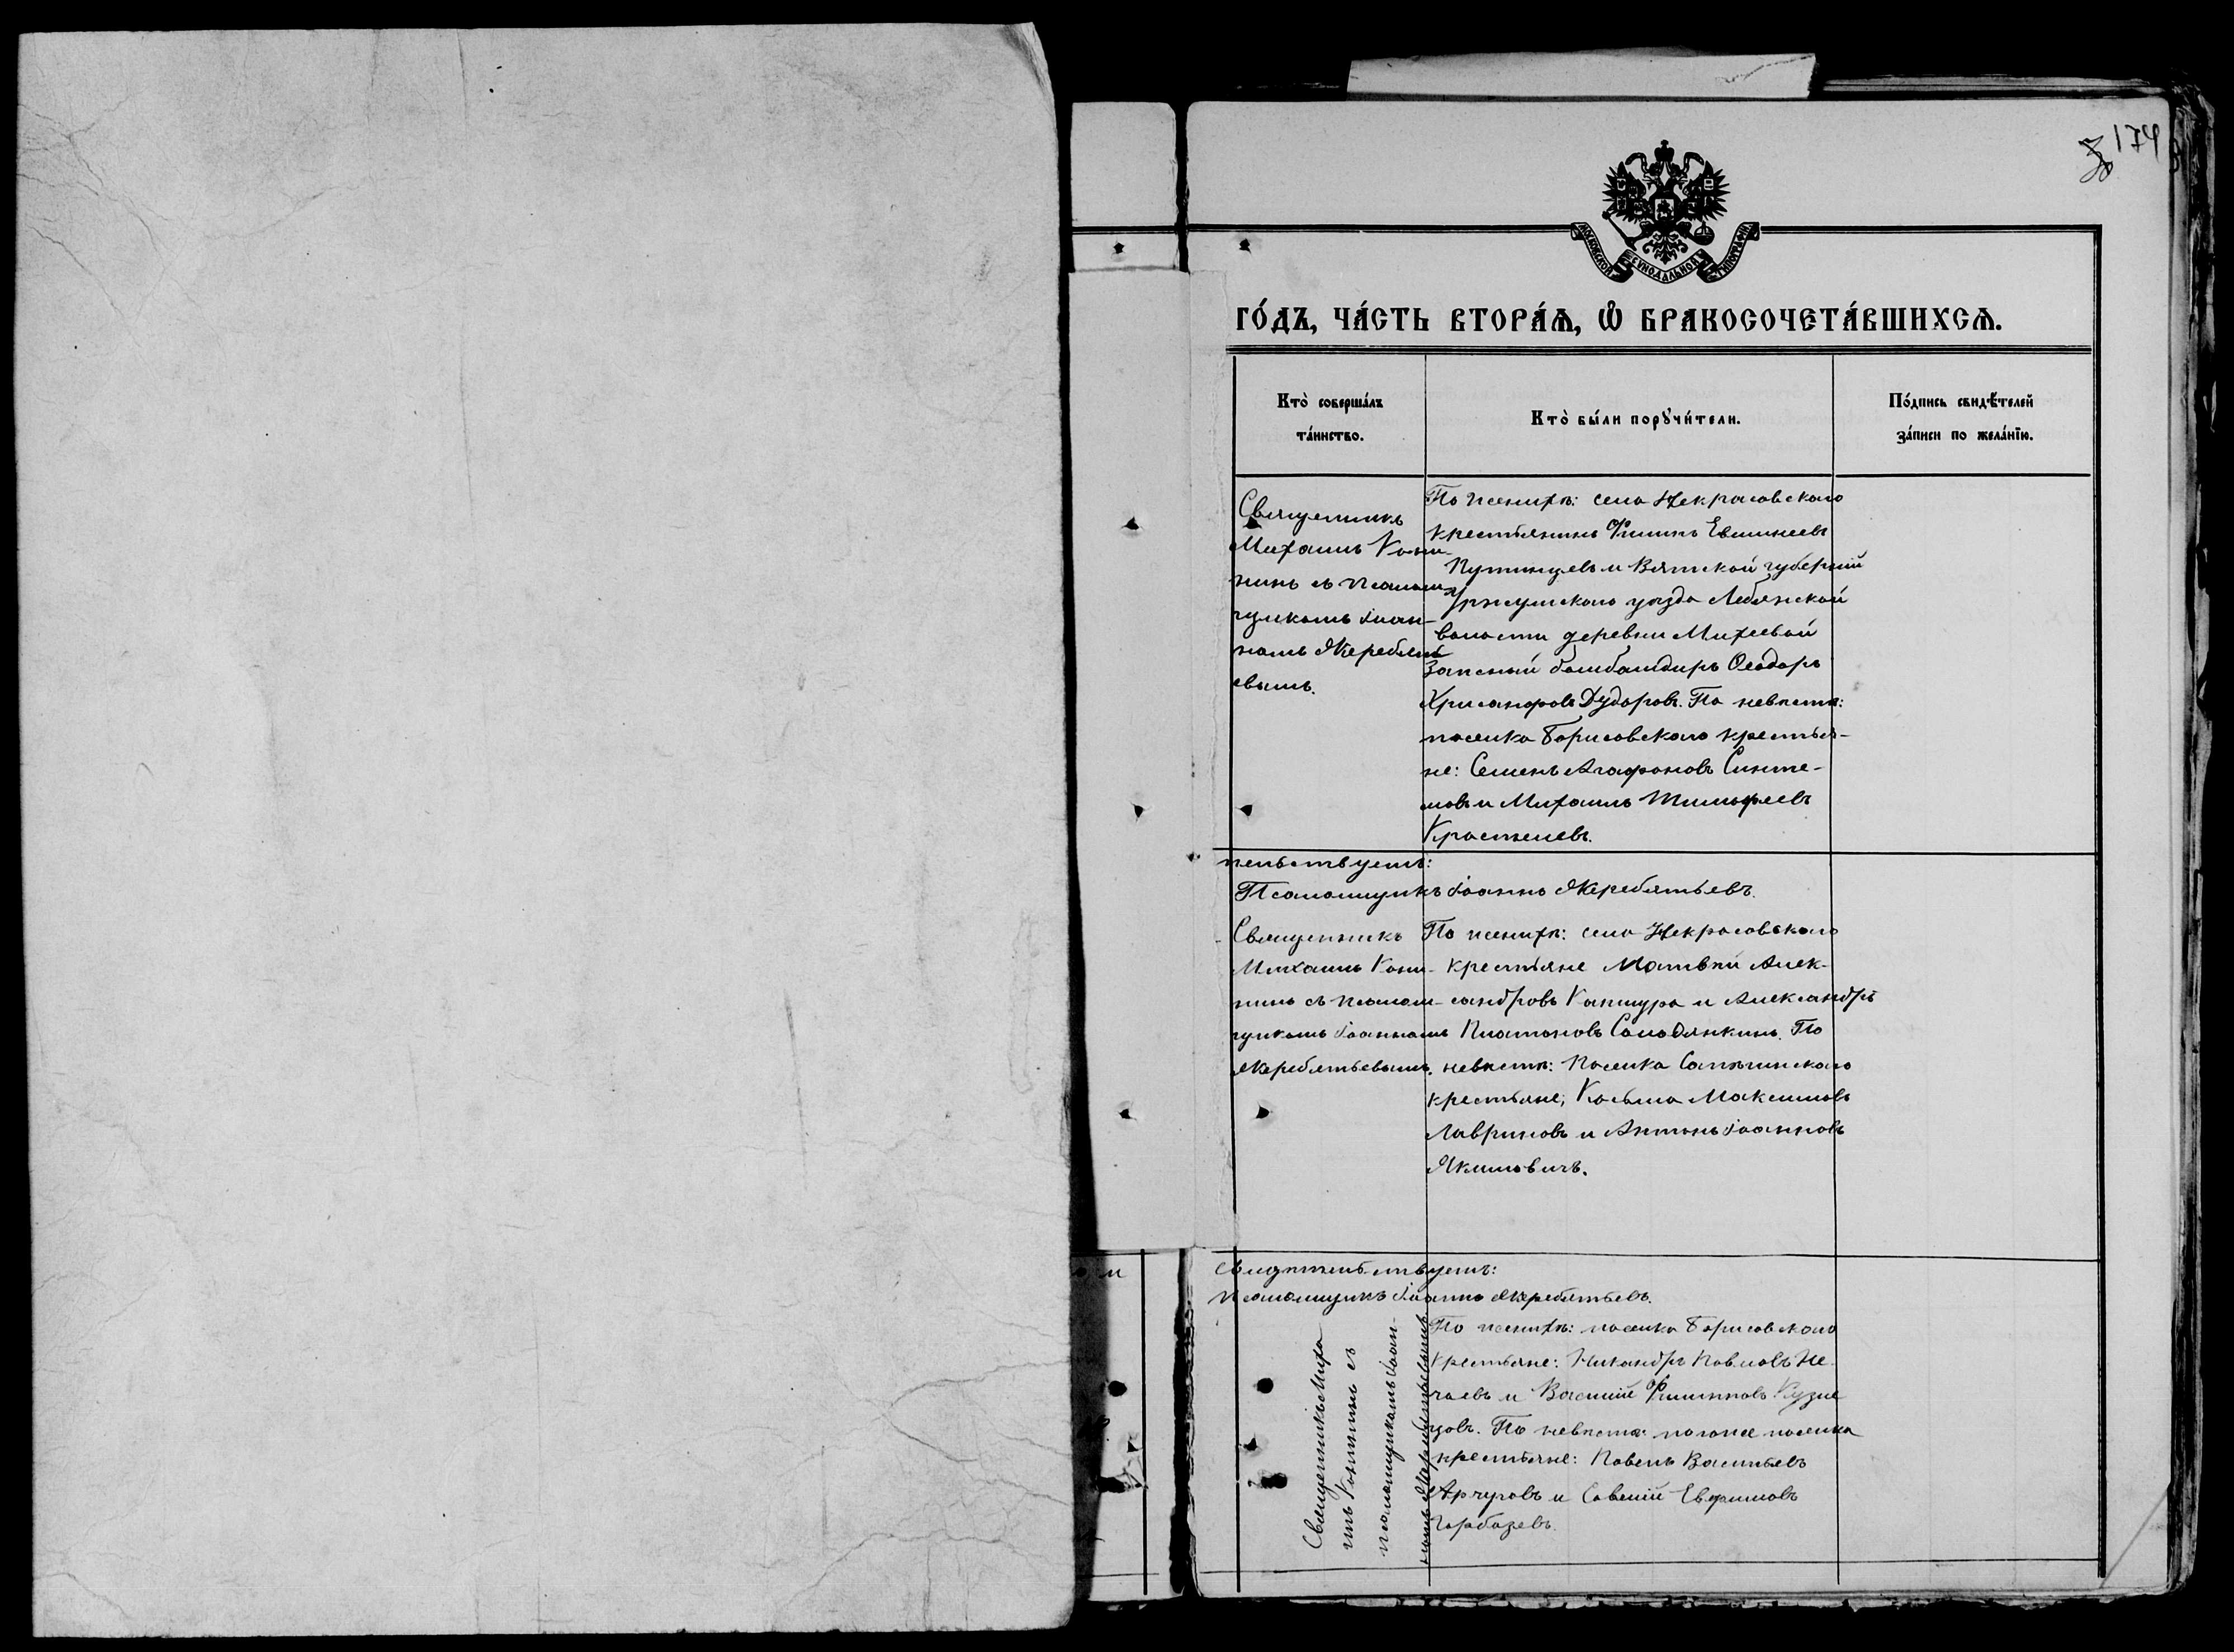 174
МОСКОВСКОЙ СѴНОДАЛЬНОЙ ТИПОГРАФІИ
ГО́ДЪ, ЧА́СТЬ ВТОРА́Ѧ, Ѽ БРАКОСОЧЕТА́ВШИХСѦ.
Кто̀ соверша́лъ
та́инство.
Кто̀ бы́ли порꙋчи́тели.
По́дпись свидѣ́телей
за́писи по жела́нїю.
Священникъ
Михаилъ Кони-
нинъ съ псалом-
щикомъ Іоан-
номъ Жеребять
евымъ.
По женихѣ: села Некрасовскаго
крестьянинъ Филипъ Евлинеевъ
Путинцевъ и Вятской губерніи
Уржумскаго уѣзда Лебяжской
волости деревни Михеевой
Запасный бомбандиръ Ѳеодоръ
Хрисанфовъ Дудоровъ. По невѣстѣ:
поселка Борисовскаго крестья-
не: Семенъ Агафоновъ Синте-
ловъ и Михаилъ Тимофеевъ
Кростелевъ.
тельствуетъ:
Псаломщикъ Іоаннъ Жеребятьевъ.
Священникъ
Михаилъ Кони-
нинъ съ псалом-
щикомъ Іоанномъ
Жеребятьевымъ.
По женихѣ: села Некрасовскаго
крестьяне Матвѣй Алек-
сандровъ Капшура и Александръ
Платоновъ Солодянкинъ. По
невѣстѣ: поселка Сапѣгинскаго
крестьяне; Косьма Максимовъ
Лавриновъ и Антонъ Іоанновъ
Якимовичъ.
свидѣтельствуетъ:
Псаломщикъ Іоаннъ Жеребятьевъ.
Священникъ Миха
илъ Конининъ съ
псаломщикомъ Іоан-
номъ Жеребятьевымъ.
По женихѣ: поселка Борисовскаго
крестьяне: Никандръ Павловъ Не-
чаевъ и Василій Филипповъ Кузне
цовъ. По невѣстѣ: того же поселка
крестьяне: Павелъ Васильевъ
Арчуговъ и Савелій Ефримовъ
Горбазевъ.